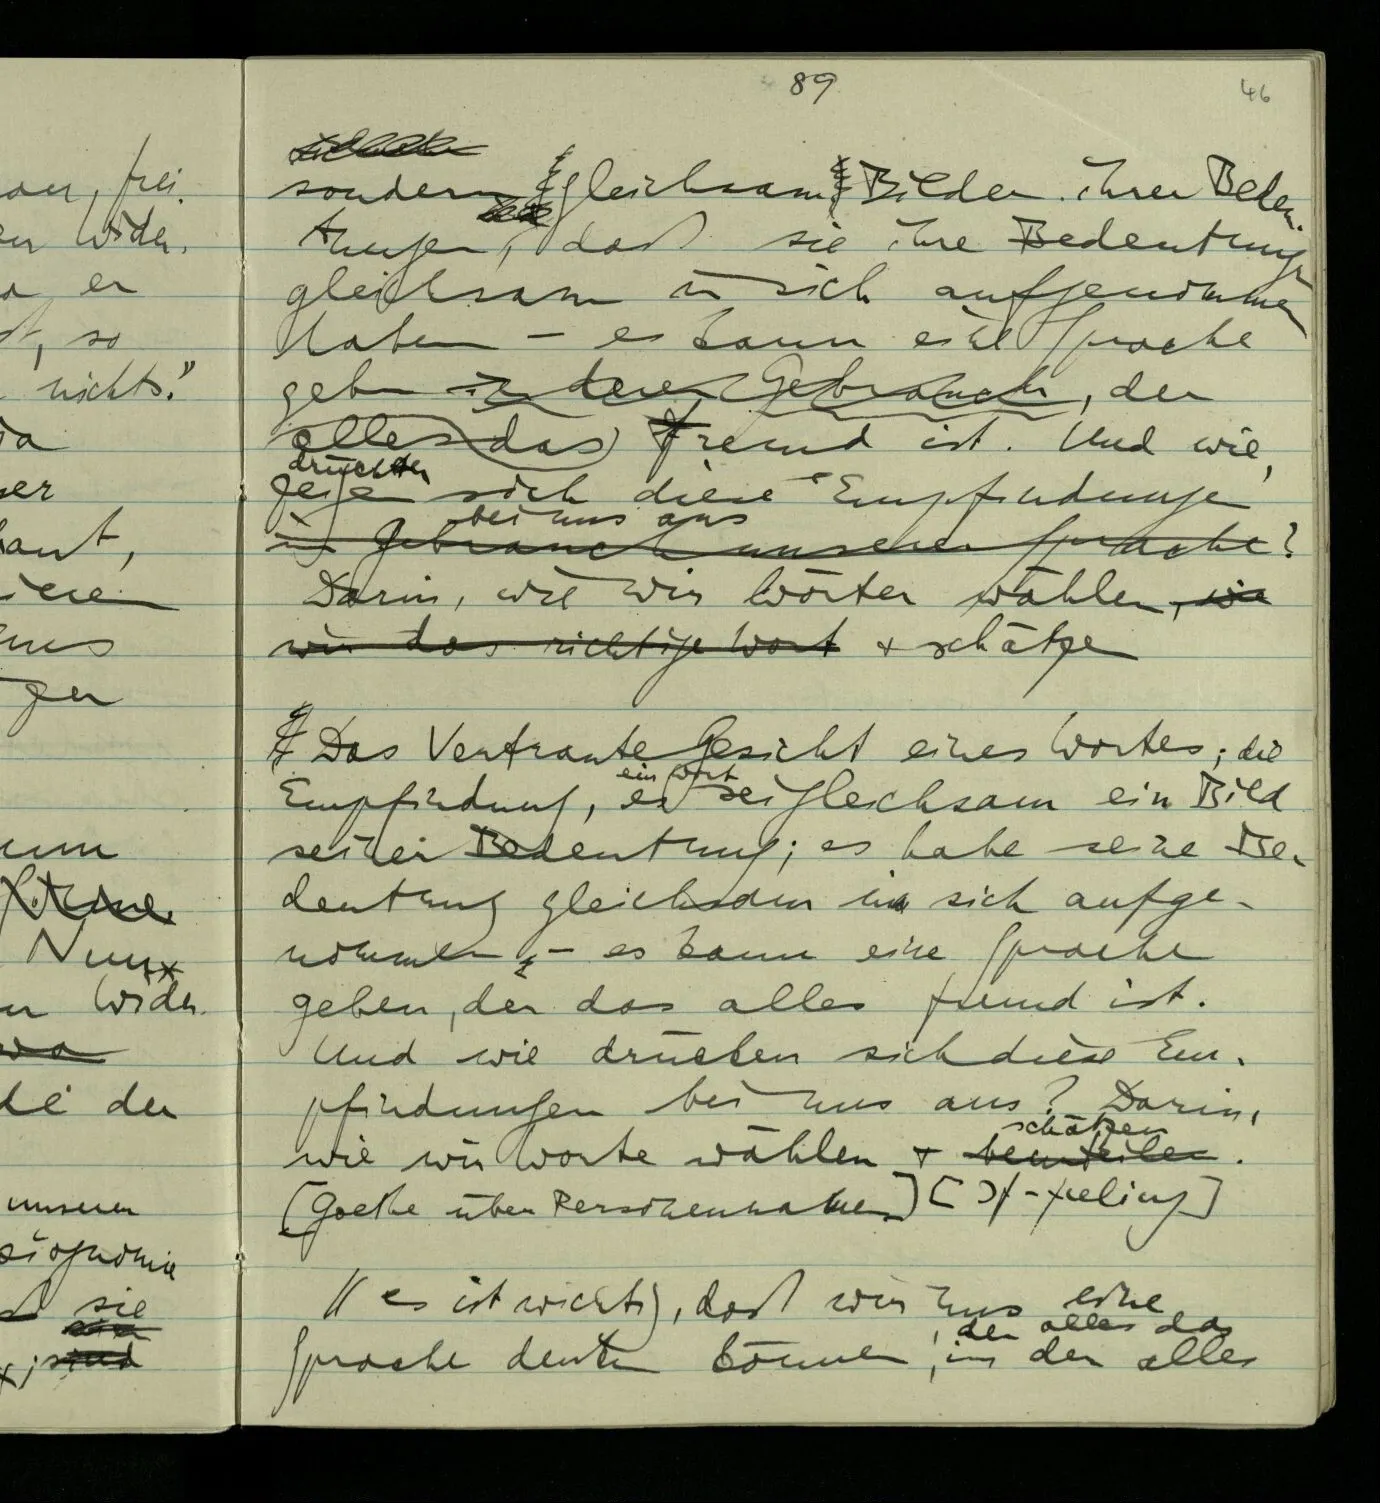 89
46
sondern gleichsam Bilder ihrer Bedeu-
tungen, daß sie ihre Bedeutungen
gleichsam in sich aufgenommen
haben – es kann eine Sprache
geben in deren Gebrauch, der
alles das fremd ist. Und wie
drückten
zeigen sich diese Empfindungen
bei uns aus
im Gebrauch unserer Sprache?
Darin, wie wir Wörter wählen, wie
wir das richtige Wort + schätzen
Das Vertraute Gesicht eines Wortes; die
ein Wort
Empfindung, es sei gleichsam ein Bild
seiner Bedeutung; es habe seine Be-
deutung gleichsam in sich aufge-
nommen, – es kann eine Sprache
geben, der das alles fremd ist.
Und wie drücken sich diese Em-
pfindungen bei uns aus? Darin,
schätzen
wie wir Worte wählen + beurteilen.
[Goethe über Personennamen] [If-feeling]
// es ist wichtig, daß wir uns eine
, der alles das
Sprache denken können, in der alles
an, frei-
en Wider-
er
, so
nichts."
ser
aut,
uns
gen
Nun
en Wider-
wo
die der
unserer
siognomie
sie
; sind